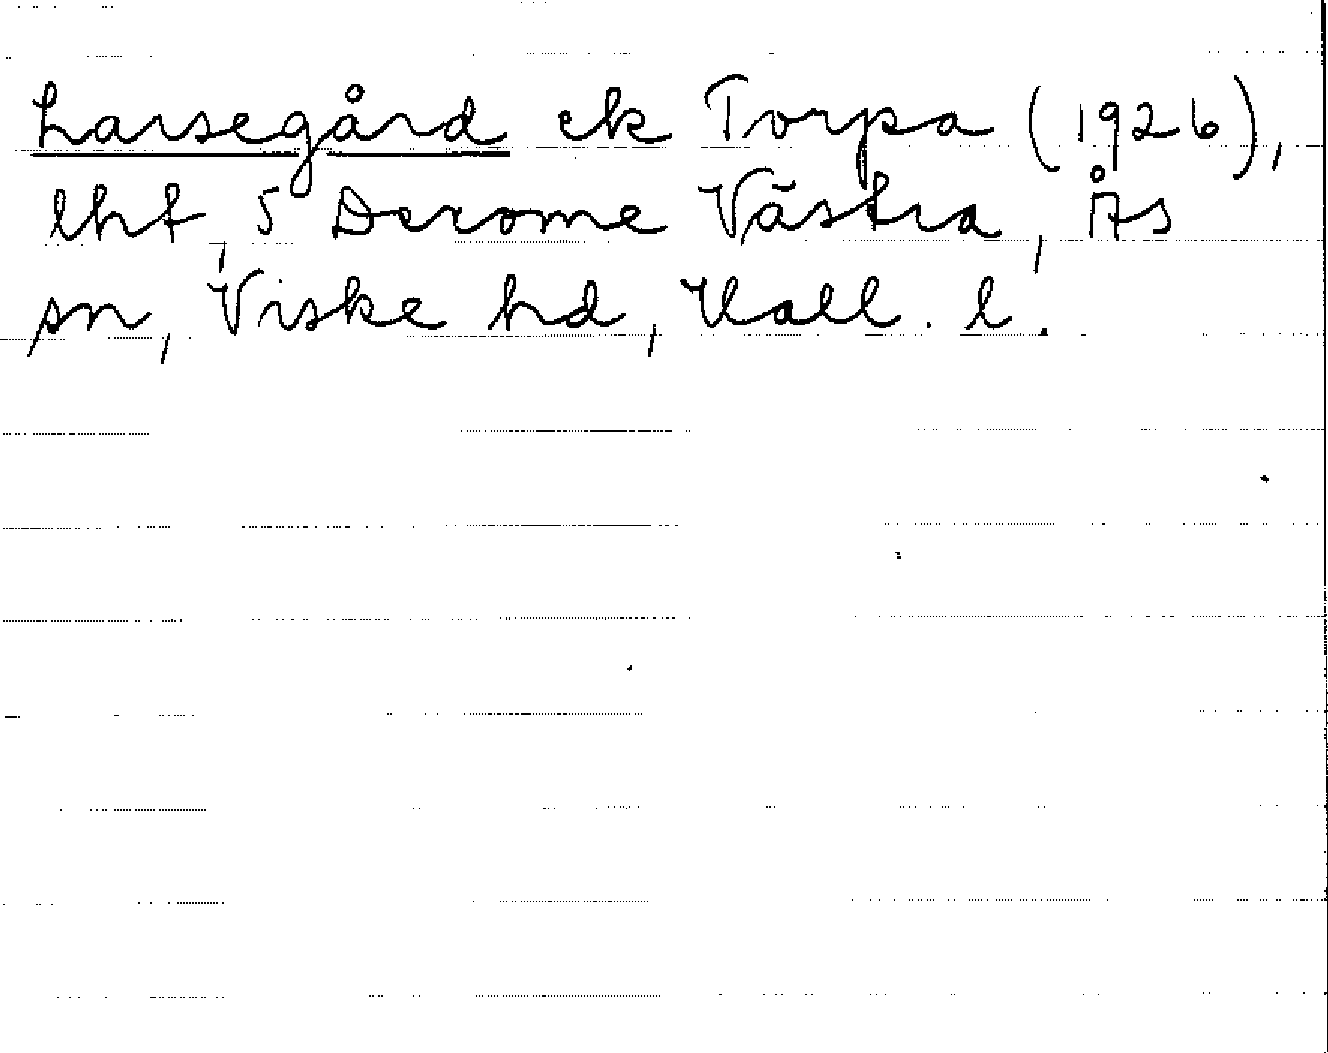 Larsegård ek Torpa (1926),
lht, 5 Derome Västra, Ås
sn, Viske hd, Hall. l.